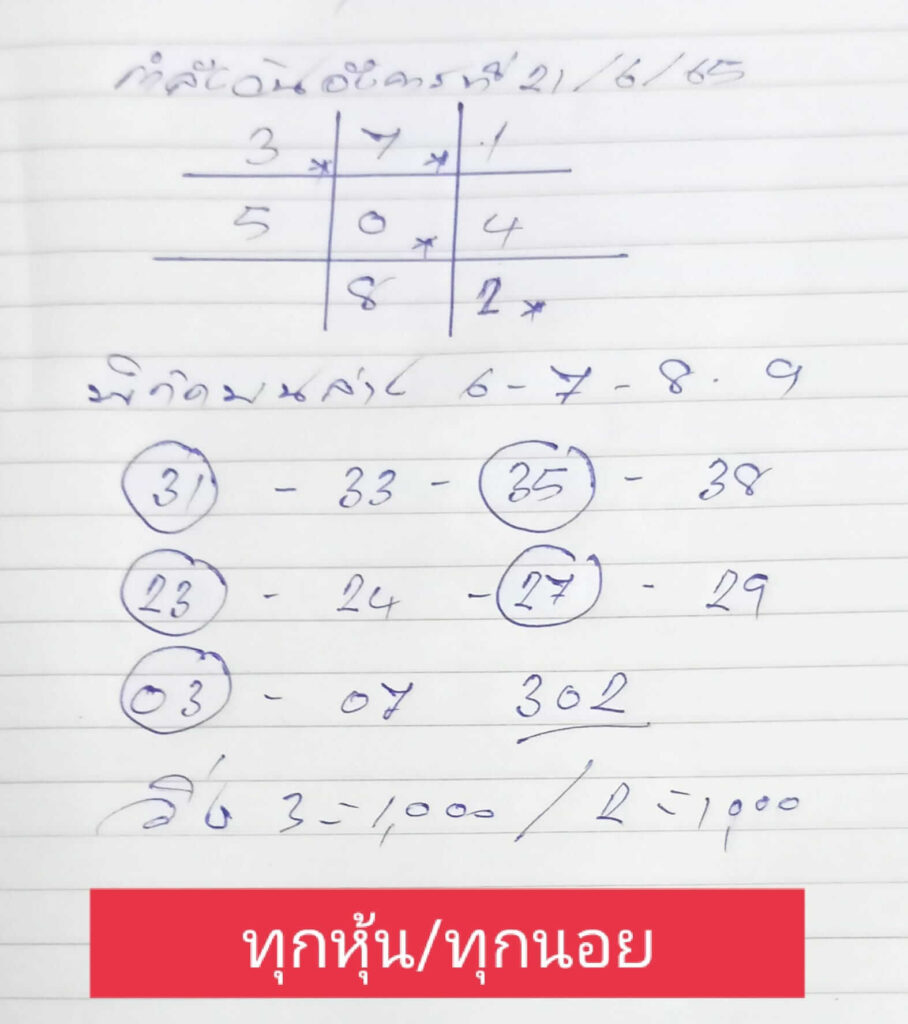 กำลังวันอังคารที่ 21/6/65
3 * 7 * 1
5 0 * 4
8 2 *
พิกัดบนล่าง 6-7-8.9
31 - 33 - 35 - 38
23 - 24 - 27 - 29
03 - 07 302
วิ่ง 3=1,000 / 2=1,000
ทุกหุ้น/ทุกนอย